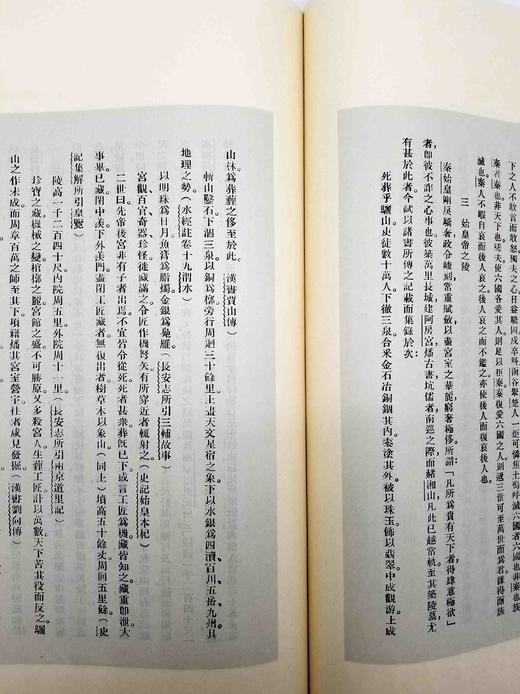 下之人不敢言而敢怒獨夫之心日益驕固戍卒叫函谷舉楚人一炬可憐焦土嗚呼滅六國者六國也非秦也族
秦者秦也非天下也嗟夫使六國各愛其人則足以拒秦秦復愛六國之人則遞三世可至萬世而爲君誰得而族
滅也秦人不暇自哀而後人哀之後人哀之而不鑑之亦使後人而復哀後人也
三　始皇帝之陵
秦始皇剛戾驕奢政令峻刻常重賦斂以盡宮室之華麗窮奢極侈所謂「凡所爲貴有天下者得肆意極欲」
者卽彼不詐之心事也彼築萬里長城建阿房宮燔古書坑儒者南巡之際而赭湘山凡此已越常軌至其築陵墓尤
有甚於此者今試以諸書所傳之記載而集錄於次
死葬乎驪山吏徒數十萬人下徹三泉合采金石冶銅錮其內桼塗其外被以珠玉飾以翡翠中成觀游上成
山林爲葬薶之侈至於此（漢書賈山傳）
斬山鑿石下涸三泉以銅爲槨旁行周迴三十餘里上畫天文星宿之象下以水銀爲四瀆百川五岳九州具
地理之勢（水經註卷十九渭水）
以明珠爲日月魚膏爲脂燭金銀爲鳧雁（長安志所引三輔故事）
宮觀百官奇器珍怪徙臧滿之令匠作機弩矢有所穿近者輒射之（史記始皇本紀）
二世曰先帝後宮非有子者出焉不宜皆令從死死者甚衆葬旣已下或言工匠爲機藏皆知之藏重卽泄大
事畢已藏閉中羨下外羨門盡閉工匠藏者無復出者樹草木以象山（同上）墳高五十餘丈周回五里餘（史
記集解所引皇覽）
陵高一千二百四十尺內院周五里外院周十一里（長安志所引兩京道里記）
珍寶之藏機械之變棺槨之麗宮館之盛不可勝原又多殺宮人生薶工匠計以萬數天下苦其役而反之驪
山之作未成而周章百萬之師至其下項籍燔其宮室營宇往者咸見發掘（漢書劉向傳）